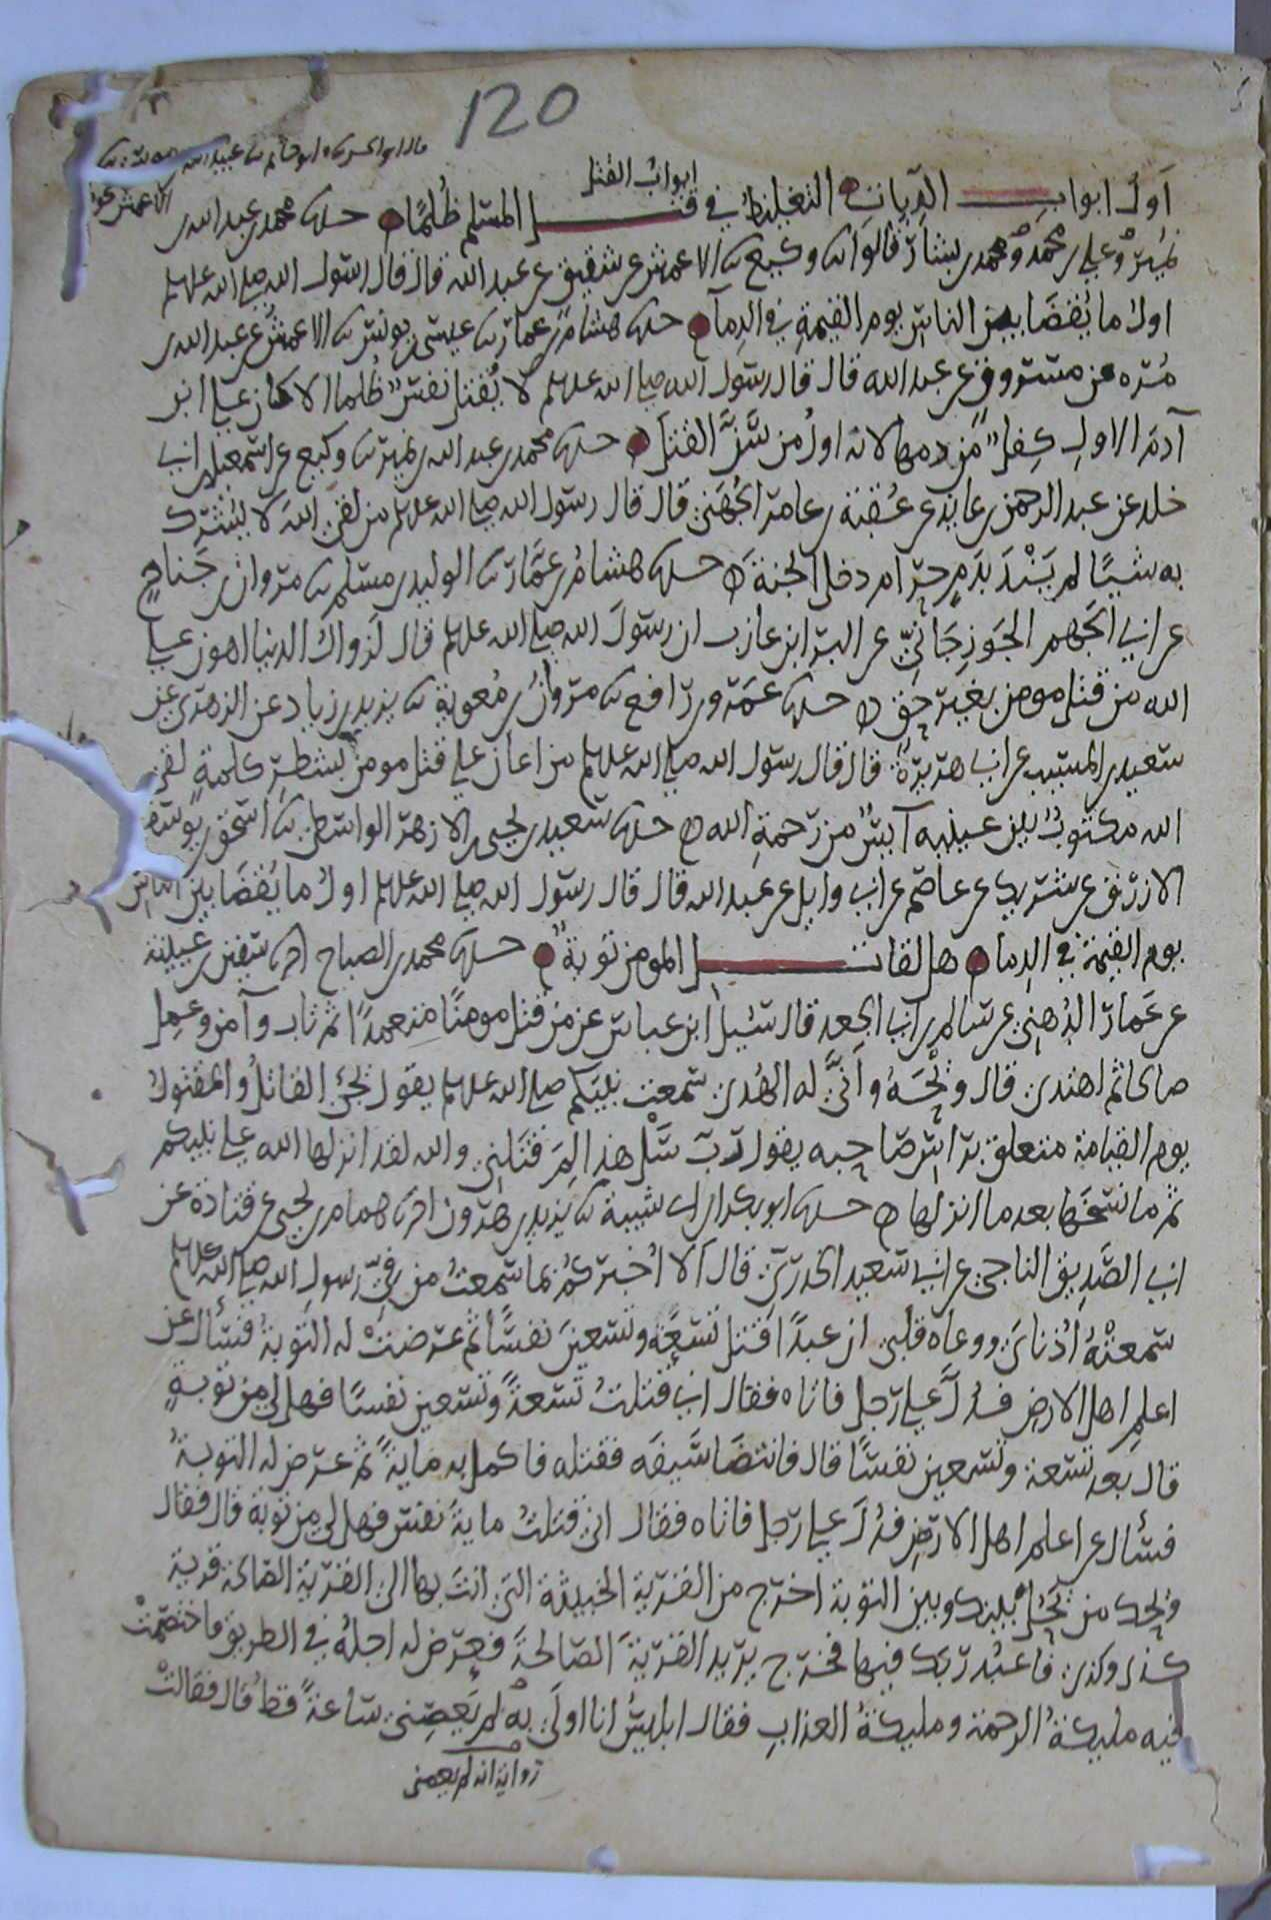 120
ابواب القتل
اول ابواب الديات التغليظ في قتل المسلم ظلما حدثنا محمد بن عبد الله بن
نمير وعلي بن محمد ومحمد بن بشار قالوا ثنا وكيع ثنا الاعمش عن شقيق عن عبد الله قال قال رسول الله صلى الله عليه وسلم
اول ما يقضا بين الناس يوم القيمة في الدماء حدثنا هشام بن عمار ثنا عيسى بن يونس ثنا الاعمش عن عبد الله بن
مره عن مسروق عن عبد الله قال قال رسول الله صلى الله عليه وسلم لا يقتل نفس ظلما الا كان على ابن
آدم الاول كفل من دمها لانه اول من سن القتل حدثنا محمد بن عبد الله بن نمير ثنا وكيع عن اسمعيل بن ابي
خلد عن عبد الرحمن بن عايذ عن عقبة بن عامر الجهني قال قال رسول الله صلى الله عليه وسلم من لقي الله لا يشرك
به شيئا لم يتند بدم حرام دخل الجنة حدثنا هشام بن عمار ثنا الوليد بن مسلم ثنا مروان بن جناح
عن ابي الجهم الجوزجاني عن البرا ابن عازب ان رسول الله صلى الله عليه وسلم قال لزوال الدنيا اهون على
الله من قتل مومن بغير حق حدثنا عمرو بن رافع ثنا مروان بن معوية ثنا يزيد بن زياد عن الزهري عن
سعيد بن المسيب عن ابي هريرة قال قال رسول الله صلى الله عليه وسلم من اعان على قتل مومن بشطر كلمة لقي
الله مكتوب بين عينيه آيس من رحمة الله حدثنا سعيد بن يحيى بن الازهر الواسطي ثنا اسحق بن يوسف
الازرق عن شريك عن عاصم عن ابي وايل عن عبد الله قال قال رسول الله صلى الله عليه وسلم اول ما يقضا بين الناس
يوم القيمة في الدماء هل لقاتل المومن توبة حدثنا محمد بن الصباح انا سفين بن عيينة
عن عمار الدهني عن سالم بن ابي الجعد قال سئيل ابن عباس عن من قتل مومنا متعمدا ثم تاب وآمن وعمل
صالحا ثم اهتدى قال ويحه وانى له الهدى سمعت نبيكم صلى الله عليه وسلم يقول يجئ القاتل والمقتول
يوم القيامة متعلق براس صاحبه يقول رب سل هذا لم قتلني والله لقد انزلها الله على نبيكم
ثم ما نسخها بعد ما انزلها حدثنا ابو بكر بن ابي شيبة ثنا يزيد بن هرون انا همام بن يحيى عن قتادة عن
ابي الصديق الناجي عن ابي سعيد الخدري قال الا اخبركم بما سمعت من في رسول الله صلى الله عليه وسلم
سمعته اذناي ووعاه قلبي ان عبدا قتل تسعة وتسعين نفسا ثم عرضت له التوبة فسأل عن
اعلم اهل الارض فدل على رجل فاتاه فقال اني قتلت تسعة وتسعين نفسا فهل لي من توبة
قال بعد تسعة وتسعين نفسا قال فانتضا سيفه فقتله فاكمل به ماية ثم عرض له التوبة
فسأل عن اعلم اهل الارض فدل على رجل فاتاه فقال اني قتلت ماية نفس فهل لي من توبة قال فقال
ويحك من يحول بينك وبين التوبة اخرج من القرية الخبيثة التي انت بها الى القرية الصالحة قرية
كذى وكذى فاعبد ربك فيها فخرج يريد القرية الصالحة فعرض له اجله في الطريق فاختصمت
فيه مليكة الرحمة ومليكة العذاب فقال ابليس انا اولى به لم يعصني ساعة قط قال فقالت